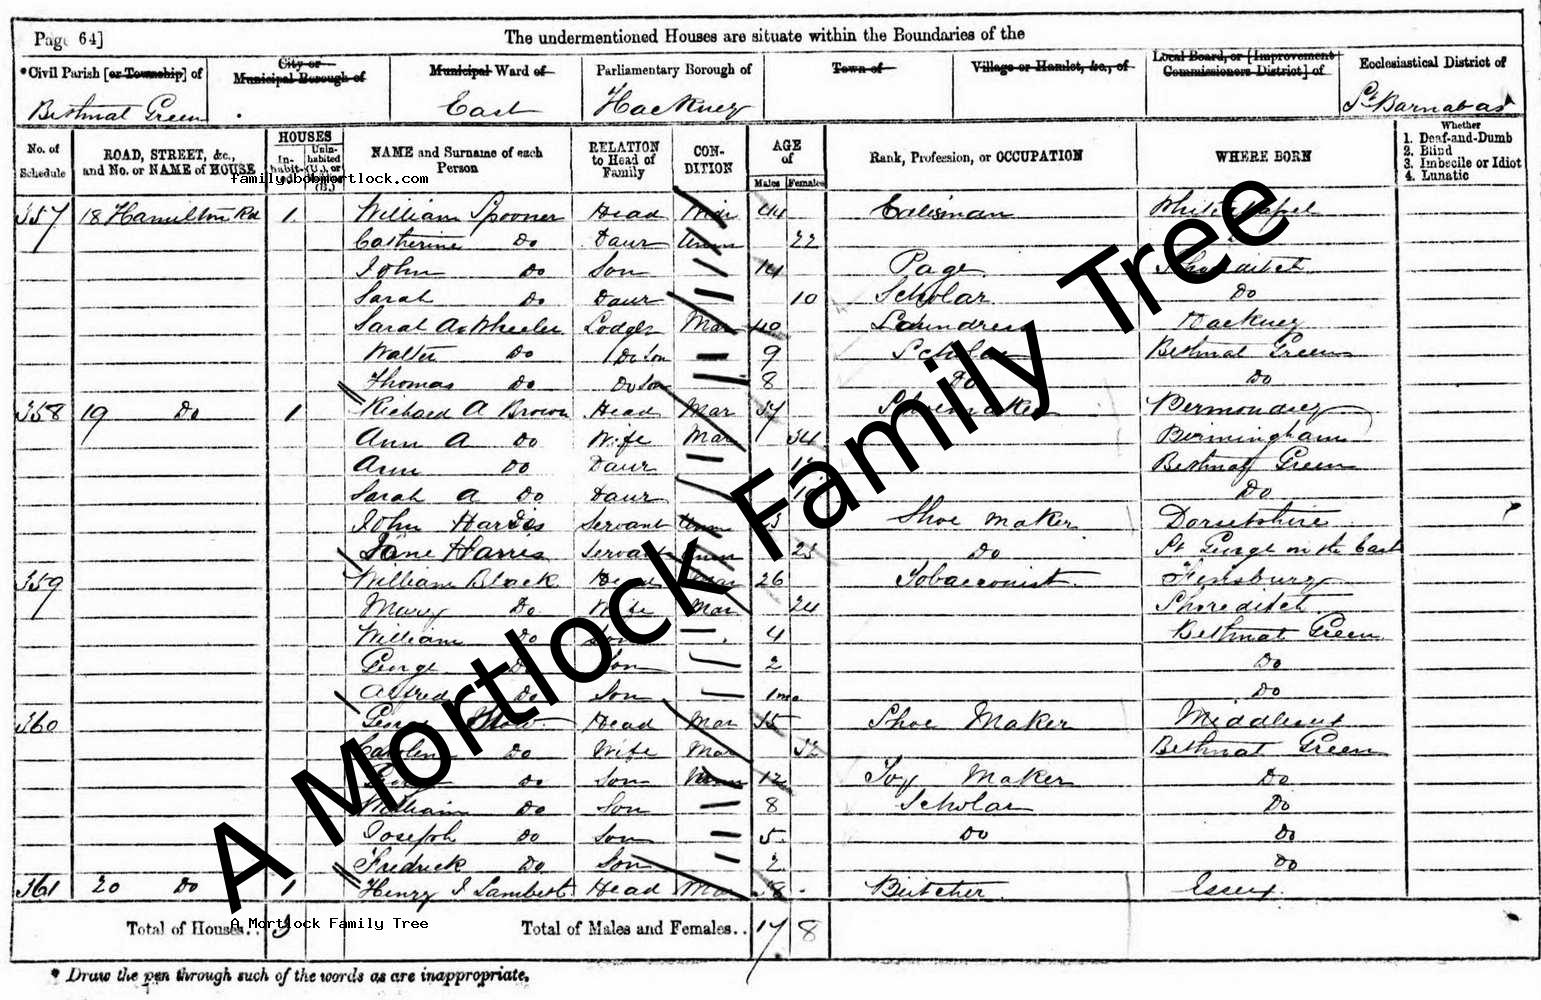 Page 64]
The undermentioned Houses are situate within the Boundaries of the
*Civil Parish [or Township] of
City or Municipal Borough of
Municipal Ward of
Parliamentary Borough of
Town of
Village or Hamlet, &c., of
Local Board, or [Improvement Commissioners District] of
Ecclesiastical District of
Bethnal Green
East
Hackney
St Barnabas
No. of Schedule
ROAD, STREET, &c., and No. or NAME of HOUSE
HOUSES
Inhabited
Uninhabited (U.), or Building (B.)
NAME and Surname of each Person
RELATION to Head of Family
CONDITION
AGE of
Males
Females
Rank, Profession, or OCCUPATION
WHERE BORN
Whether
1. Deaf-and-Dumb
2. Blind
3. Imbecile or Idiot
4. Lunatic
family.bobmortlock.com
357 18 Hamilton Rd 1 William Spooner Head Widr 44 Whitechapel
Catherine Do Daur Unm 22
John Do Son 14 Page Shoreditch
Sarah Do Daur 10 Scholar Do
Sarah A Wheeler Lodger Mar 40 Laundress Hackney
Walter Do Do Son 9 Scholar Bethnal Green
Thomas Do Do Son 8 Do Do
358 19 Do 1 Richard A Brown Head Mar 37 Shoemaker Bermondsey
Ann A Do Wife Mar 34 Birmingham
Ann Do Daur Bethnal Green
Sarah A Do Daur Do
John Harris Servant Unm Shoe Maker Dorsetshire
Jane Harris Servant Unm 23 Do St George in the East
359 William Black Head Mar 26 Tobacconist Finsbury
Mary Do Wife Mar 24 Shoreditch
William Do Son 4 Bethnal Green
George Do Son 2 Do
Alfred Do Son 1mo Do
360 George Head Mar 35 Shoe Maker Middlesex
Caroline Do Wife Mar 32 Bethnal Green
Do Son 12 Toy Maker Do
William Do Son 8 Scholar Do
Joseph Do Son 5 Do Do
Fredrick Do Son 2 Do
361 20 Do 1 Henry J Lambert Head Mar 38 Butcher Essex
Total of Houses.. 3
Total of Males and Females.. 17 8
A Mortlock Family Tree
A Mortlock Family Tree
* Draw the pen through such of the words as are inappropriate.